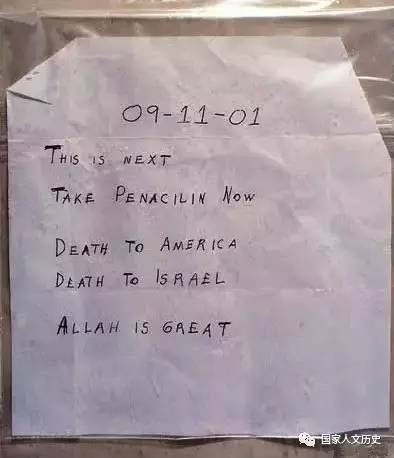 09-11-01
THIS IS NEXT
TAKE PENACILIN NOW
DEATH TO AMERICA
DEATH TO ISRAEL
ALLAH IS GREAT
国家人文历史